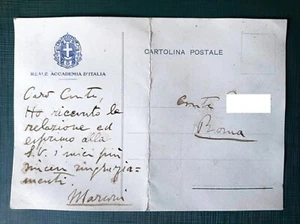 REALE ACCADEMIA D'ITALIA
CARTOLINA POSTALE
Caro Conti,
Ho ricevuto la
relazione ed
esprimo alla
S.V. i miei più
sinceri ringrazia-
menti.
Marconi
Conte
Roma